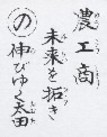 農工商
未来を拓き
の 伸びゆく太田